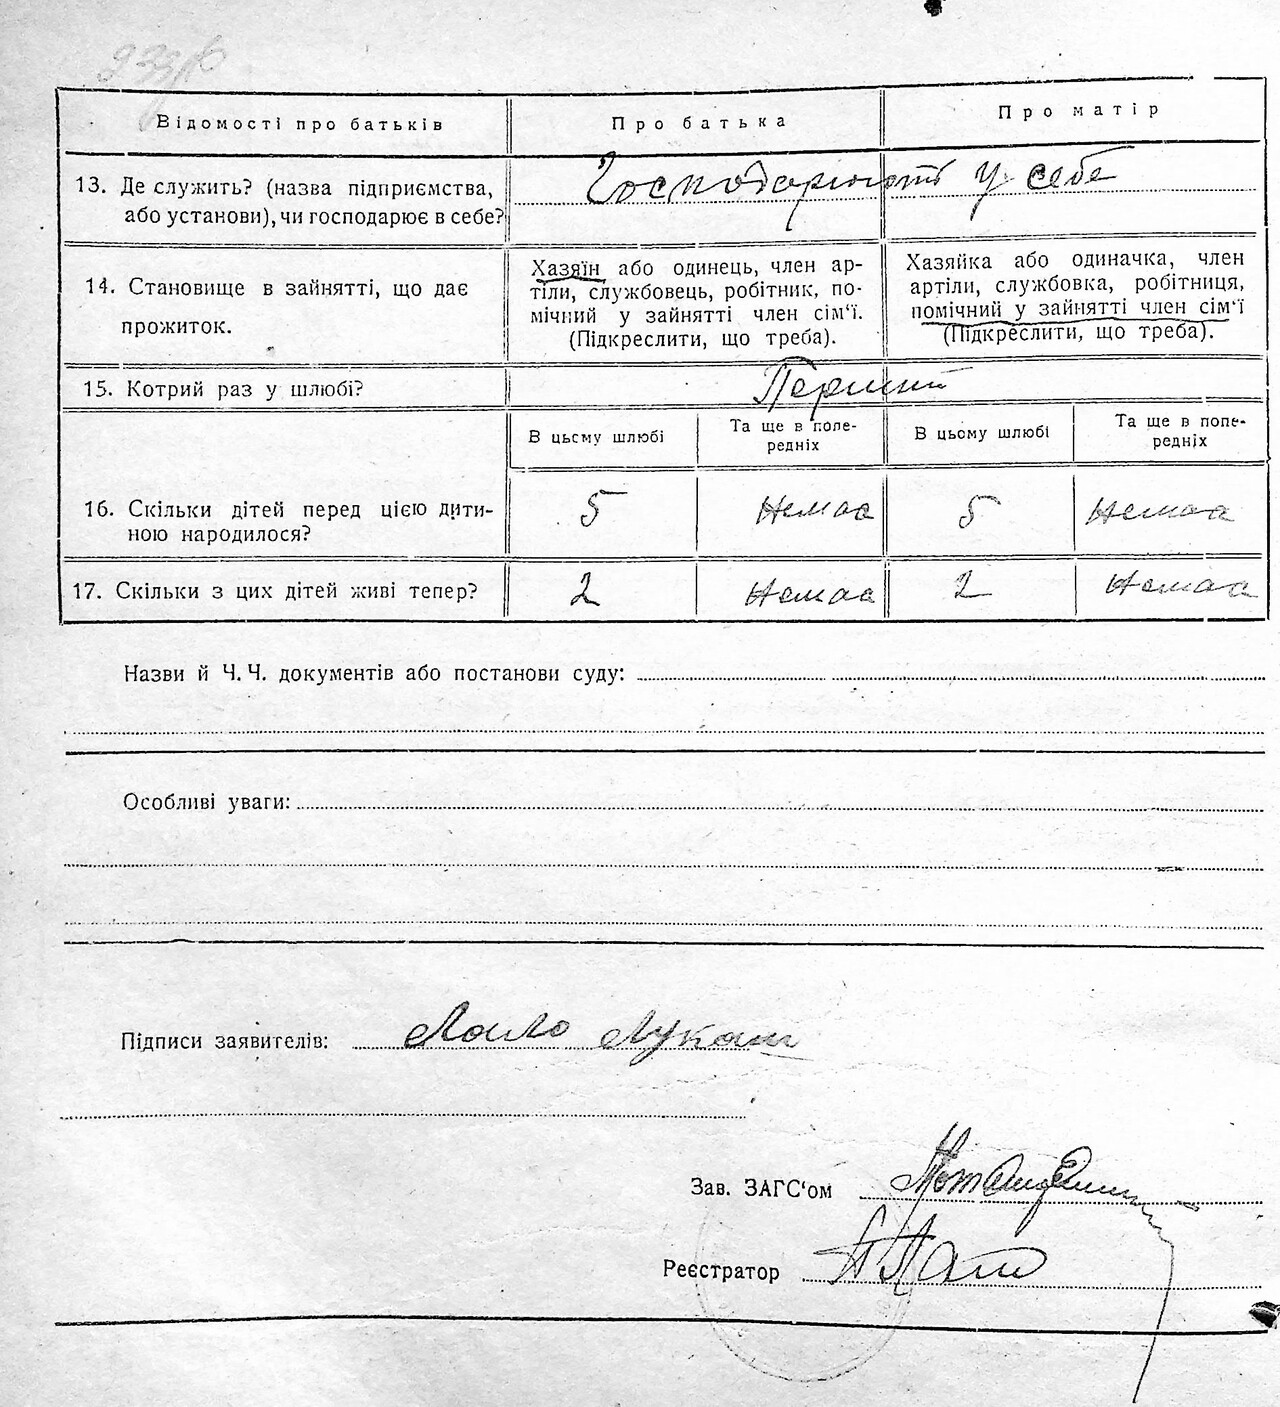 Відомості про батьків
Про батька
Про матір
13. Де служить? (назва підприємства,
або установи), чи господарює в себе?
Господарюють у себе
14. Становище в зайнятті, що дає
прожиток.
Хазяїн або одинець, член ар-
тіли, службовець, робітник, по-
мічний у зайнятті член сім‘ї.
(Підкреслити, що треба).
Хазяйка або одиначка, член
артіли, службовка, робітниця,
помічний у зайнятті член сім‘ї
(Підкреслити, що треба).
15. Котрий раз у шлюбі?
Перший
В цьому шлюбі
Та ще в попе-
редніх
В цьому шлюбі
Та ще в попе-
редніх
16. Скільки дітей перед цією дити-
ною народилося?
5
Немає
5
Немає
17. Скільки з цих дітей живі тепер?
2
Немає
2
Немає
Назви й Ч. Ч. документів або постанови суду:
Особливі уваги:
Підписи заявителів:
Лукаш
Зав. ЗАГС‘ом
Реєстратор